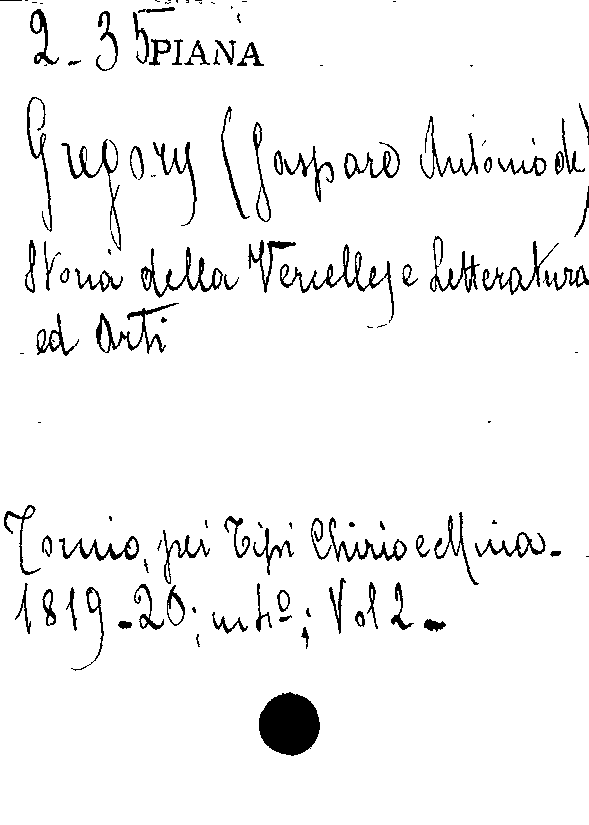 2-35 PIANA
Gregory (Gaspare Antonio de)
Storia della Vercellese Letteratura
ed Arti
Torino, pei Tipi Chirio e Mina.
1819-20; in 4º; Vol 2-